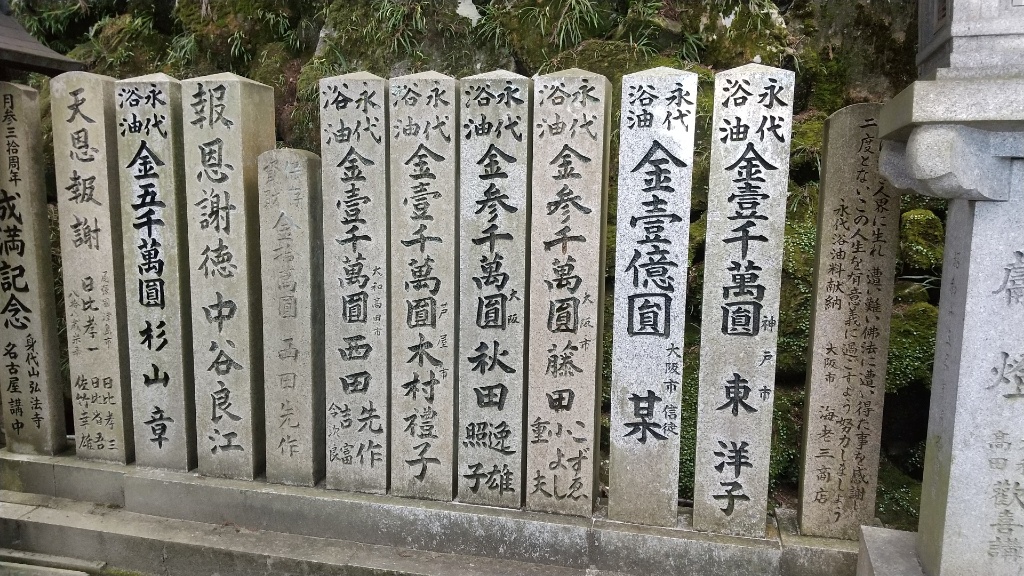 二度とないこの人生を有意義に過ごすよう努力しましょう
永代浴油料献納 大阪市 海老三商店
永代浴油 金壹千萬圓 神戸市 東洋子
永代浴油 金壹億圓 大阪市信徒 某
永代浴油 金参千萬圓 大阪市 藤田 こずゑ 小よし 重夫
永代浴油 金参千萬圓 大阪 秋田 逸雄 照子
永代浴油 金壹千萬圓 芦屋市 木村禮子
永代浴油 金壹千萬圓 大和高田市 西田 先作
西田先作
報恩謝徳 中谷良江
永代浴油 金五千萬圓 杉山章
天恩報謝 日比孝一 日比孝三
月参三拾周年 成満記念 身代山弘法寺 名古屋講中
燈 高田歡喜講